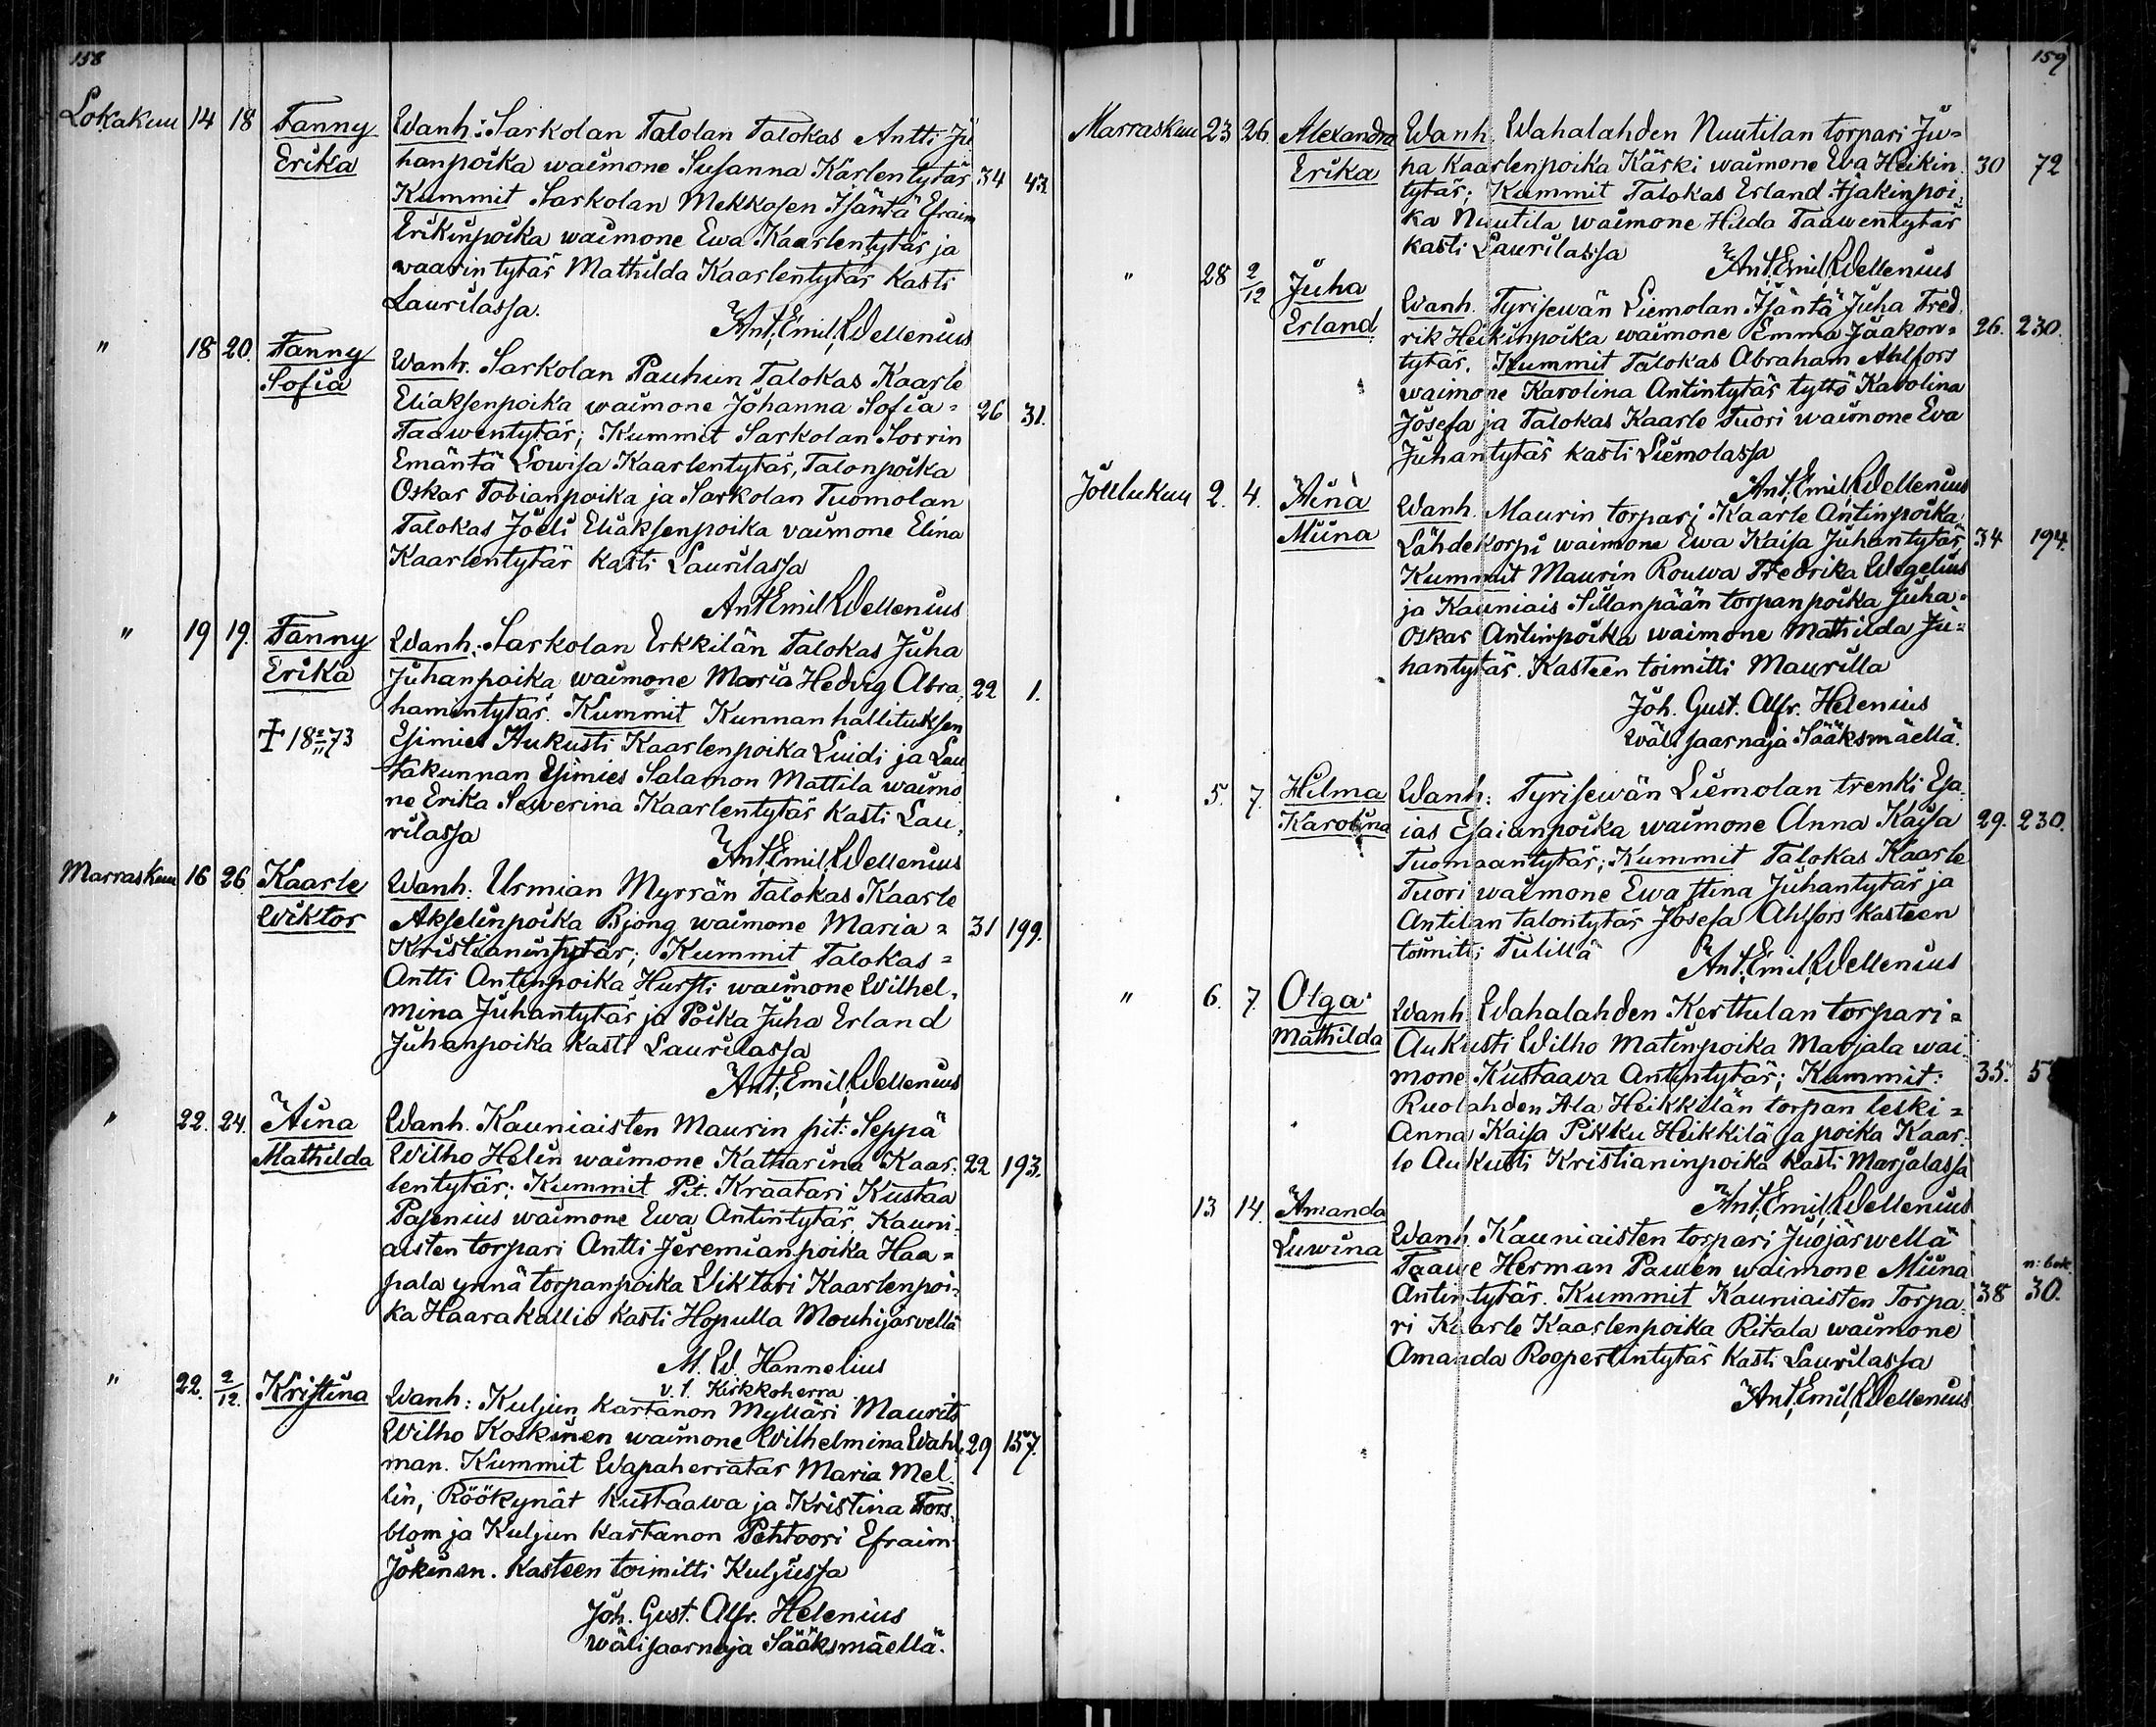 158
Lokakuu 14 18 Fanny Wanh: Sarkolan Talolan Talokas Antti Ju
Erika hanpoika waimone Susanna Karlentytär 34 43.
Kummit Sarkolan Mekkosen Isäntä Efraim
Erikinpoika waimone Ewa Kaarlentytär ja
vaarin tytär Mathilda Kaarlentytär Kasti
Laurilassa.
Ant. Emil. Wellenius
" 18 20. Fanny Wanh. Sarkolan Pauhun Talokas Kaarle
Sofia Eliaksenpoika waimone Johanna Sofia= 26 31.
Taawentytär; Kummit Sarkolan Sorrin
Emäntä Lowisa Kaarlentytär, Talonpoika
Oskar Tobianpoika ja Sarkolan Tuomolan
Talokas Joeli Eliaksenpoika vaimone Elina
Kaarlentytär kasti Laurilassa
Ant Emil Wellenius
" 19 19. Fanny Wanh: Sarkolan Erkkilän Talokas Juha
Erika Juhanpoika waimone Maria Hedvig Abra, 22 1.
hamintytär. Kummit Kunnan hallituksen
Esimies Aukusti Kaarlenpoika Luidi ja Lau
takunnan Esimies Salamon Mattila waimo
ne Erika Sewerina Kaarlentytär kasti Lau,
rilassa
Ant, Emil, Wellenius
Marraskuu 16 26. Kaarle Wanh: Urmian Myrrän Talokas Kaarle
Wiktor Akselinpoika Bjong waimone Maria= 31 199.
Kristianintytär; Kummit Talokas=
Antti Antinpoika Hursti waimone Wilhel,
mina Juhantytär ja Poika Juha Erland
Juhanpoika kasti Laurilassa
Ant. Emil. Wellenius
" 22. 24. Aina Wanh. Kauniaisten Maurin pit: Seppä
Mathilda Wilho Helin waimone Katharina Kaar. 22 193.
lentytär; Kummit Pit. Kraatari Kustaa
Pasenius waimone Ewa Antintytär Kauni-
aisten torpari Antti Jeremianpoika Haa=
pala ynnä torpanpoika Viktori Kaarlenpoi-
ka Haarakallio kasti Hopulla Mouhijarvellä
M. W. Hannelius
v. t. Kirkkoherra
" 22. 2/12. Kristina Wanh: Kuljun kartanon Mylläri Maurits
Wilho Koskinen waimone Wilhelmina Wahl, 29 157.
man. Kummit Wapaherratar Maria Mel
lin, Röökynät Kustaawa ja Kristina Fors,
blom ja Kuljun kartanon Pehtoori Efraim
Jokinen. Kasteen toimitti Kuljussa
Joh. Gust. Alfr. Helenius
wälisaarnaja Sääksmäellä.
159
Marraskuu 23 26. Alexandra Wanh. Wahalahden Nuutilan torpari Ju=
Erika ha Kaarlenpoika Kärki waimone Eva Heikin 30 72
tytär; Kummit Talokas Erland Isakinpoi,
ka Nuutila waimone Hilda Taawentytär
kasti Laurilassa
Ant, Emil, Wellenius
" 28 2/12 Juha Wanh. Tyrisewän Liemolan Isäntä Juha Fred,
Erland rik Heikinpoika waimone Emma Jaakon= 26. 230.
tytär. Kummit Talokas Abraham Ahlfors
waimone Karolina Antintytär tyttö Karolina
Josefa ja Talokas Kaarle Tuori waimone Eva
Juhantytär kasti Liemolassa
Ant. Emil, Wellenius
Joulukuu 2. 4. Aina Wanh. Maurin torpari Kaarle Antinpoika
Miina Lähdekorpi waimone Ewa Kaisa Juhantytär 34 194.
Kummit Maurin Rouwa Fredrika Wegelius
ja Kauniais Sillanpään torpanpoika Juha=
Oskar Antinpoika waimone Mathilda Ju=
hantytär. Kasteen toimitti Maurilla
Joh. Gust. Alfr. Helenius
Wäli saarnaja Sääksmäellä.
5. 7. Hilma Wanh: Tyrisewän Liemolan trenki Esa.
Karolina ias Esaianpoika waimone Anna Kaisa 29. 230.
Tuomaantytär; Kummit Talokas Kaarle
Tuori waimone Ewa Stina Juhantytär ja
Antilan talontytär Josefa Ahlfors kasteen
toimitti Tulilla
Ant, Emil, Wellenius
" 6. 7. Olga Wanh. Wahalahden Kerttulan torpari=
Mathilda Aukusti Wilho Matinpoika Marjala wai
mone Kustaava Antintytär; Kummit: 35.
Ruolahden Ala Heikkilän torpan leski=
Anna Kaisa Pikku Heikkilä ja poika Kaar.
le Aukusti Kristianinpoika kasti Marjalassa
Ant, Emil, Wellenius
13 14. Amanda Wanh. Kauniaisten torpari Juojärwellä
Luwina Taawe Herman Pawén waimone Miina n: bok
Antintytär. Kummit Kauniaisten Torpa 38 30.
ri Kaarle Kaarlenpoika Ritala waimone
Amanda Roopertintytär kasti Laurilassa
Ant, Emil, Wellenius